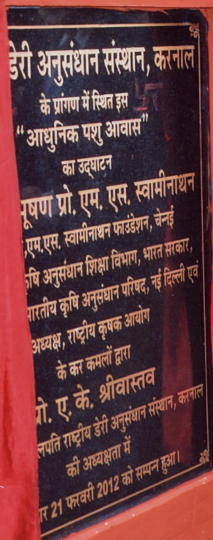 डेरी अनुसंधान संस्थान, करनाल
के प्रांगण में स्थित इस
"आधुनिक पशु आवास"
का उद्घाटन
भूषण प्रो. एम. एस. स्वामीनाथन
एम.एस. स्वामीनाथन फाउंडेशन, चेन्नई
कृषि अनुसंधान शिक्षा विभाग, भारत सरकार,
भारतीय कृषि अनुसंधान परिषद, नई दिल्ली एवं
अध्यक्ष, राष्ट्रीय कृषक आयोग
के कर कमलों द्वारा
प्रो. ए. के. श्रीवास्तव
लपति राष्ट्रीय डेरी अनुसंधान संस्थान, करनाल
की अध्यक्षता में
ार 21 फरवरी 2012 को सम्पन्न हुआ।